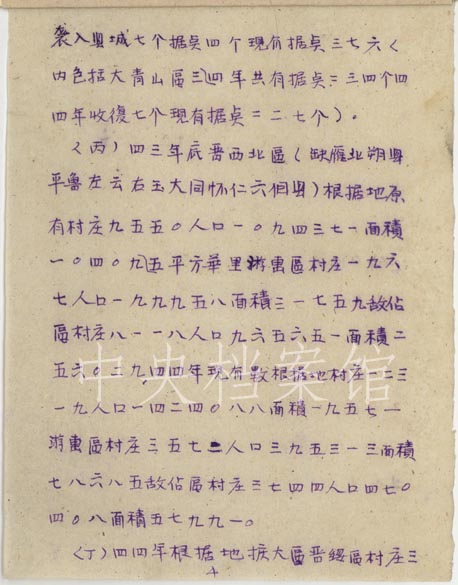 袭入县城七个据点四个现有据点三七六(
内包括大青山區三四年共有据点二三四个四
四年收復七个现有据点二二七个)。
(丙)四三年底晋西北區(缺雁北朔县
平鲁左云右玉大同怀仁六個县)根据地原
有村庄九五五〇人口一〇九四三七一面積
一〇四〇九五平方華里游击區村庄一九六
七人口一九九九五八面積三一七五九敌佔
區村庄八一一八人口九六五六五一面積二
五六〇三九,四四年现有数根据地村庄一二三
一九人口一四二四〇八八面積一九五七一
游击區村庄三五七二人口三九五三一三面積
七八六八五敌佔區村庄三七四四人口四七〇
四〇八面積五七九九一。
(丁)四四年根据地扩大區晋绥區村庄三
中央档案馆